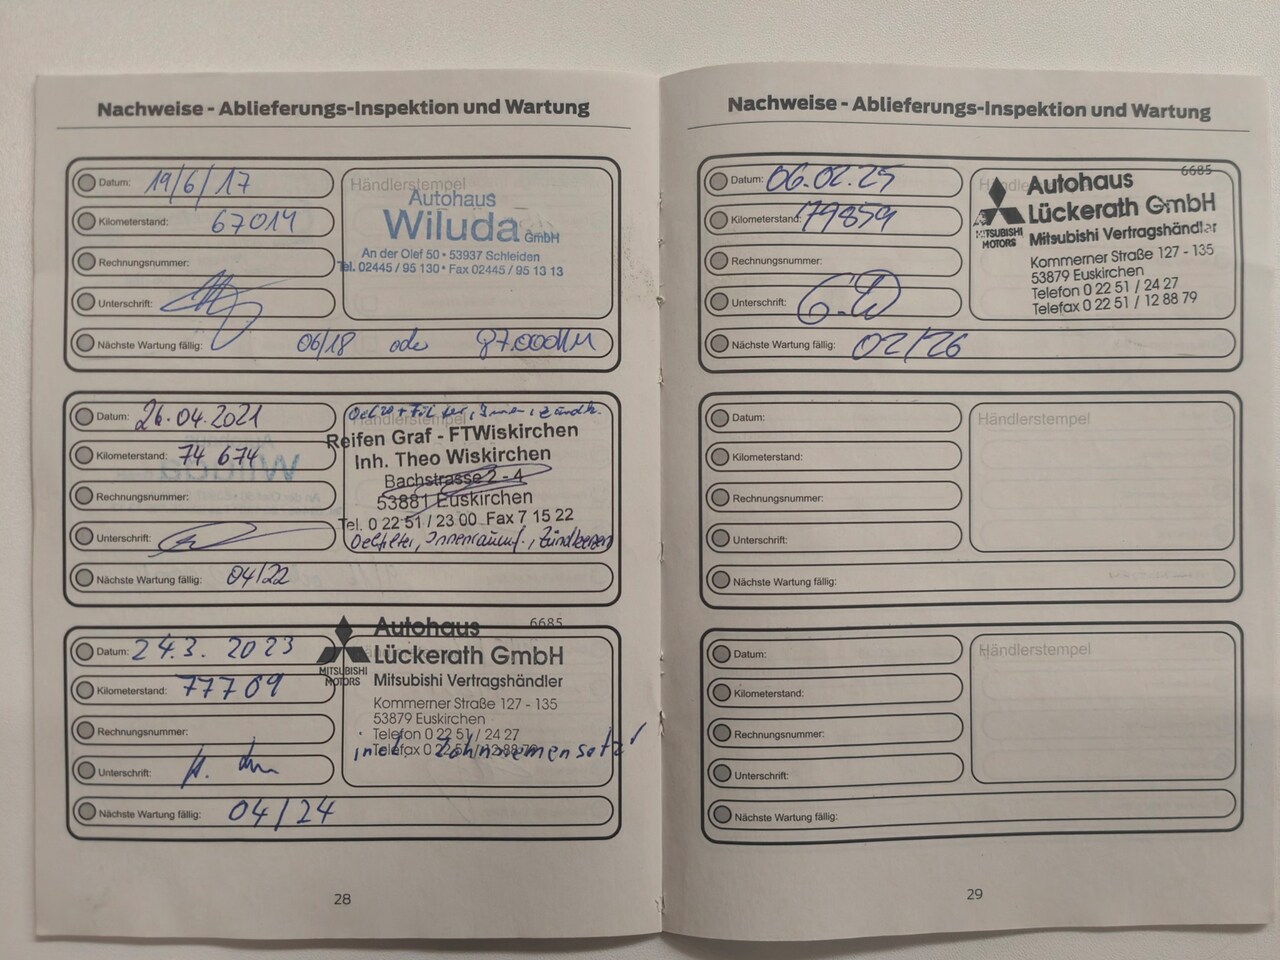 Nachweise - Ablieferungs-Inspektion und Wartung
Datum: 19/6/17
Kilometerstand: 67014
Rechnungsnummer:
Unterschrift:
Nächste Wartung fällig: 06/18 oder 87.000KM
Händlerstempel
Autohaus
Wiluda GmbH
An der Olef 50 • 53937 Schleiden
Tel. 02445 / 95 130 • Fax 02445 / 95 13 13
Datum: 26.04.2021
Kilometerstand: 74 674
Rechnungsnummer:
Unterschrift:
Nächste Wartung fällig: 04/22
Händlerstempel
Reifen Graf - FTWiskirchen
Inh. Theo Wiskirchen
Bachstrasse 2 - 4
53881 Euskirchen
Tel. 0 22 51 / 23 00 Fax 7 15 22
Oelfilter, Innenraumf., Zündkerzen
Datum: 24.3. 2023
Kilometerstand: 77709
Rechnungsnummer:
Unterschrift:
Nächste Wartung fällig: 04/24
6685
Autohaus
Lückerath GmbH
MITSUBISHI
MOTORS
Mitsubishi Vertragshändler
Kommerner Straße 127 - 135
53879 Euskirchen
Telefon 0 22 51 / 24 27
Telefax 0 22 51 / 12 88 79
incl. Zahnriemensatz
28
Nachweise - Ablieferungs-Inspektion und Wartung
Datum: 06.02.25
Kilometerstand: 79859
Rechnungsnummer:
Unterschrift:
Nächste Wartung fällig: 02/26
6685
Autohaus
Lückerath GmbH
MITSUBISHI
MOTORS
Mitsubishi Vertragshändler
Kommerner Straße 127 - 135
53879 Euskirchen
Telefon 0 22 51 / 24 27
Telefax 0 22 51 / 12 88 79
Datum:
Kilometerstand:
Rechnungsnummer:
Unterschrift:
Nächste Wartung fällig:
Händlerstempel
Datum:
Kilometerstand:
Rechnungsnummer:
Unterschrift:
Nächste Wartung fällig:
Händlerstempel
29